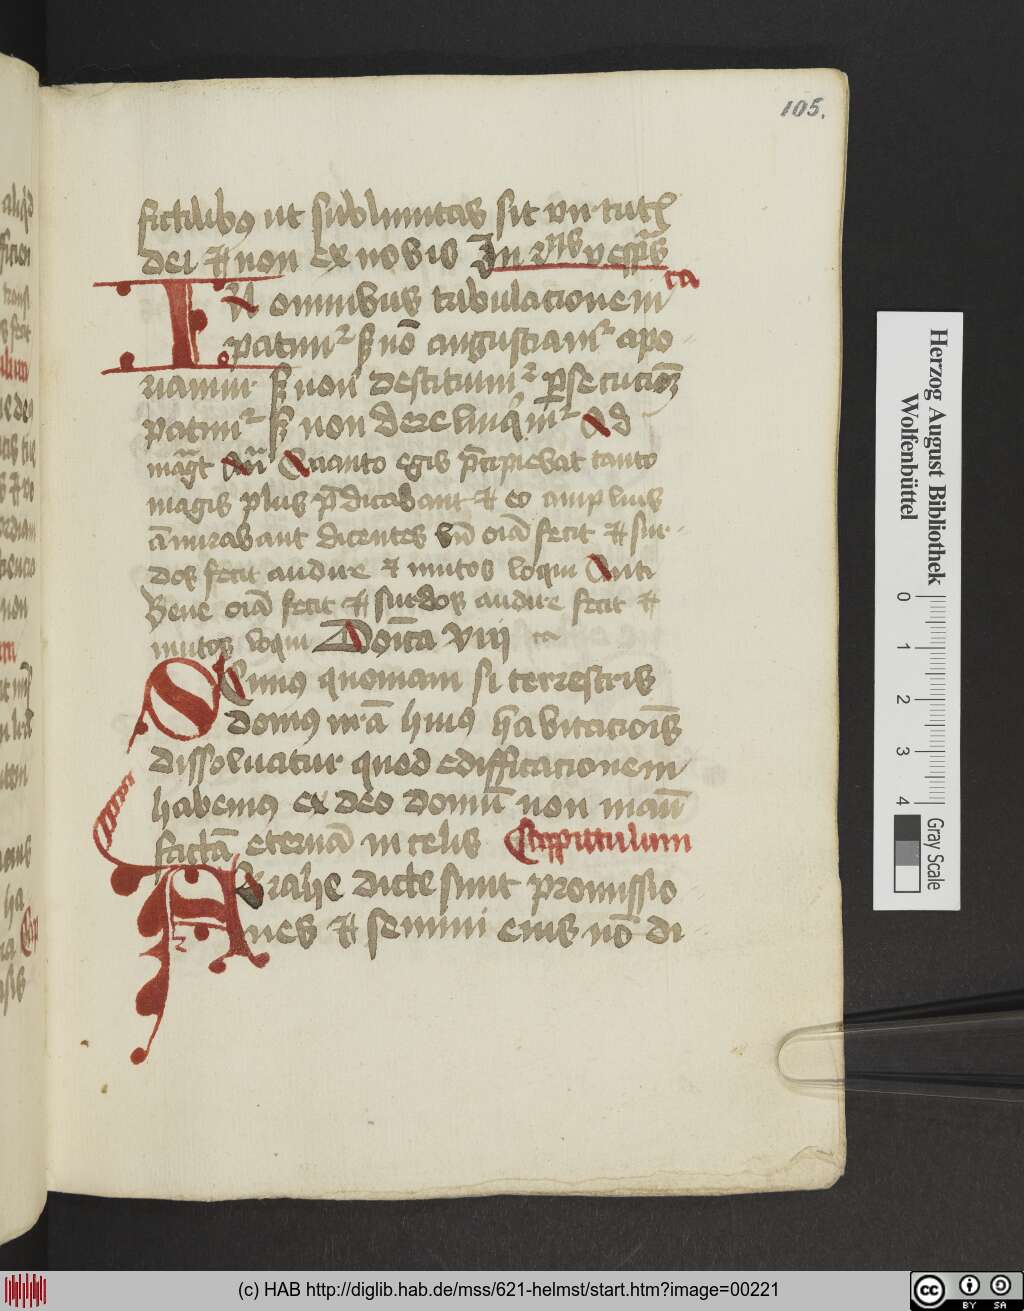 105.
fictilibꝫ ut sublimitas sit virtutꝭ
dei et non ex nobis In 2is vesperis
In omnibus tribulacionem ca
patimur sꝫ nō angustiamur apo
riamur sꝫ non destituimur persecucionem
patimur sꝫ non derelinquimur Ad
magt Quanto egis p̄cipiebat tanto
magis plus p̄dicabant et eo amplius
āmirabant dicentes bn̄ oīa fecit et sur
dos fecit audire et mutos loqui Anti
Bene oīa fecit et surdos audire fecit et
mutos loqui Domīca viii ca
Scimus quoniam si terrestris
domus nr̄a huius habitacionis
dissoluatur quod edifficacionem
habemus ex deo domū non manu
factā eternā in celis Cappittulum
Abrahe dicte sunt promissio
nes et semini eius nō di
Herzog August Bibliothek
Wolfenbüttel
0 1 2 3 4
Gray Scale
(c) HAB http://diglib.hab.de/mss/621-helmst/start.htm?image=00221
cc BY SA